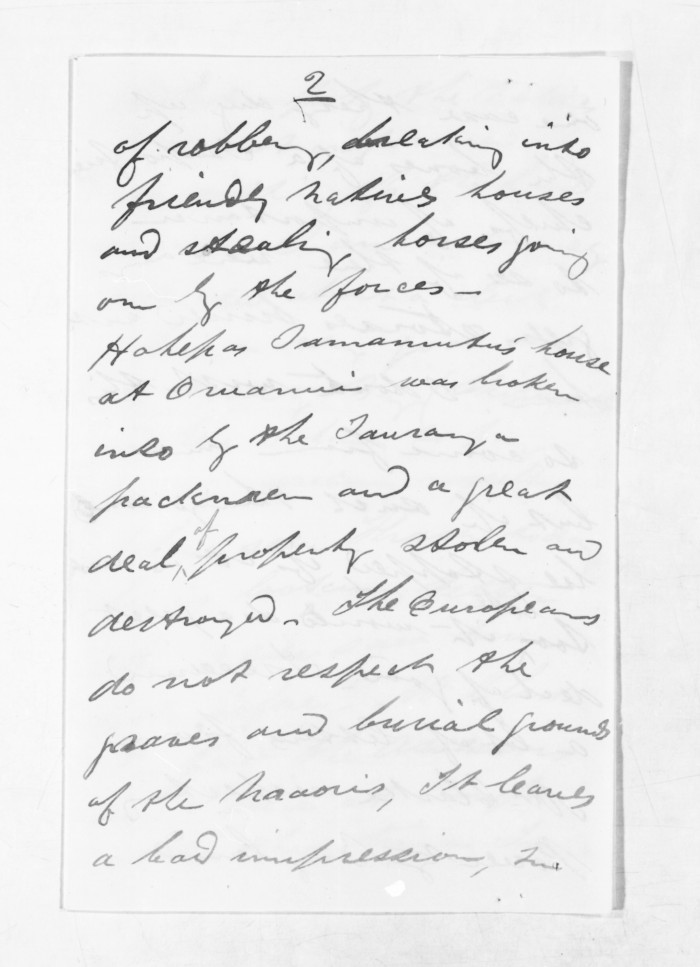 2
of robbery, breaking into
friendly natives houses
and stealing horses going
on by the forces —
Hohepas Tamamutu's house
at Oruanui was broken
into by the Tauranga
packmen and a great
deal, of property stolen and
destroyed. The Europeans
do not respect the
graves and burial grounds
of the Maoris, It leaves
a bad impression,